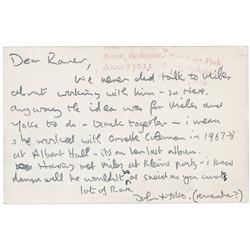 Dear Raver,
Ascot, Berkshire, Park,
Ascot 23022
We never did talk to Miles
about working with him - so Here.
anyway the idea was for Miles and
Yoko to do - track together - i mean
she worked with Ornette Coleman in 1967-8
at Albert Hall - its on her last album.
Having met Miles at Kleins party - i know
damn well he wouldn't so said as you
lots of Rave
John + Yoko. (remember?)